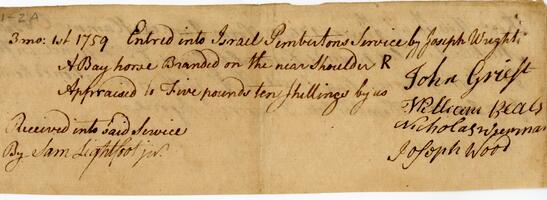 1-2A
3 mo: 1st 1759 Entred into Israel Pembertons Service by Joseph Wright
A Bay horse Branded on the near Shoulder R
Appraised to Five pounds ten shillings by us
John Griest
William Beals
Nicholas Wierman
Joseph Wood
Received into said Service
By Sam Lightfoot jnr.